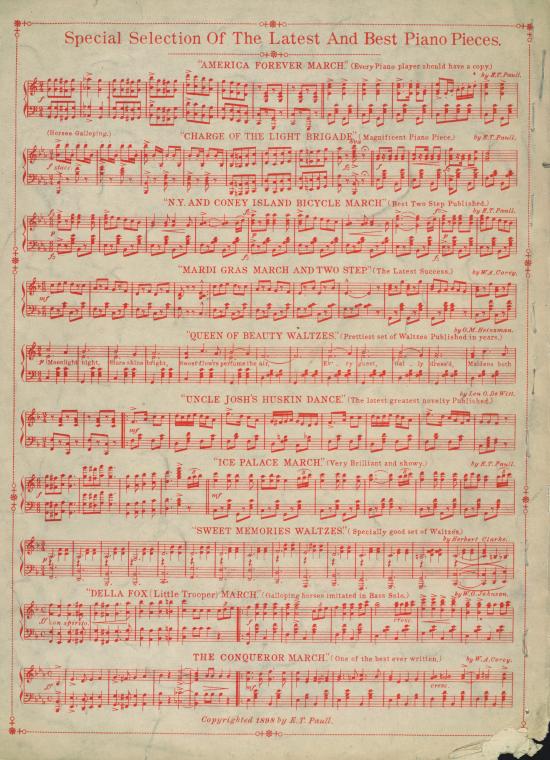 Special Selection Of The Latest And Best Piano Pieces.
"AMERICA FOREVER MARCH." (Every Piano player should have a copy.)
by E.T. Paull.
(Horses Galloping.) "CHARGE OF THE LIGHT BRIGADE" (Magnificent Piano Piece.) by E.T. Paull.
f stacc.
"N.Y. AND CONEY ISLAND BICYCLE MARCH" (Best Two Step Published.)
by E.T. Paull.
"MARDI GRAS MARCH AND TWO STEP" (The Latest Success.) by W.A. Corey.
mf
by G.M. Heinzman.
"QUEEN OF BEAUTY WALTZES." (Prettiest set of Waltzes Published in years.)
p Moonlight night, Stars shine bright, Sweet flow'rs perfume the air, Ev - 'ry guest, Gai - ly dress'd, Maidens both
by Len O. De Witt.
"UNCLE JOSH'S HUSKIN DANCE." (The latest greatest novelty Published.)
mf
"ICE PALACE MARCH." (Very Brilliant and showy.) by E.T. Paull.
f mf
"SWEET MEMORIES WALTZES." (Specially good set of Waltzes.)
by Herbert Clarke.
"DELLA FOX (Little Trooper) MARCH." (Galloping horses imitated in Bass Solo.) by W.O. Johnson.
ff con spirito. cresc.
THE CONQUEROR MARCH." (One of the best ever written.) by W.A. Corey.
ff mf cresc.
Copyrighted 1898 by E.T. Paull.